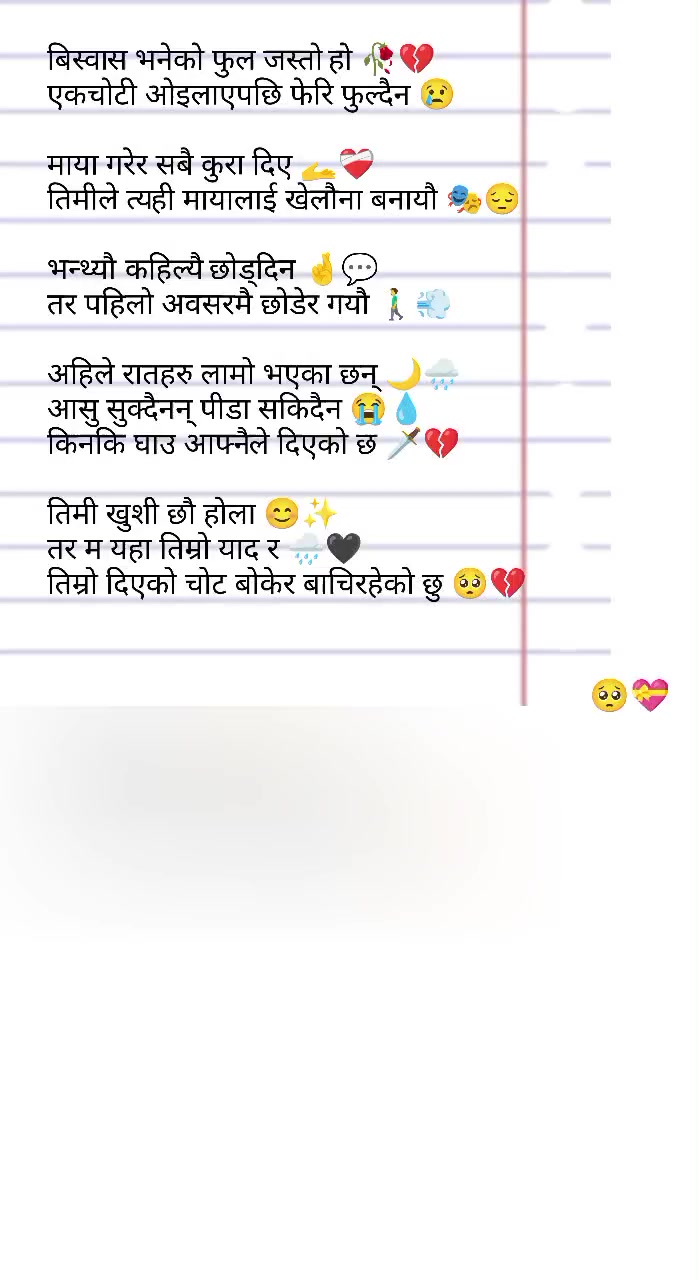 बिस्वास भनेको फुल जस्तो हो 🥀💔
एकचोटी ओइलाएपछि फेरि फुल्दैन 😢
माया गरेर सबै कुरा दिए 🫴❤️‍🩹
तिमीले त्यही मायालाई खेलौना बनायौ 🎭😔
भन्थ्यौ कहिल्यै छोड्दिन 🤞💬
तर पहिलो अवसरमै छोडेर गयौ 🚶‍♂️💨
अहिले रातहरु लामो भएका छन् 🌙🌧️
आसु सुक्दैनन् पीडा सकिदैन 😭💧
किनकि घाउ आफ्नैले दिएको छ 🗡️💔
तिमी खुशी छौ होला 😊✨
तर म यहा तिम्रो याद र 🌧️🖤
तिम्रो दिएको चोट बोकेर बाचिरहेको छु 🥺💔
🥺💝